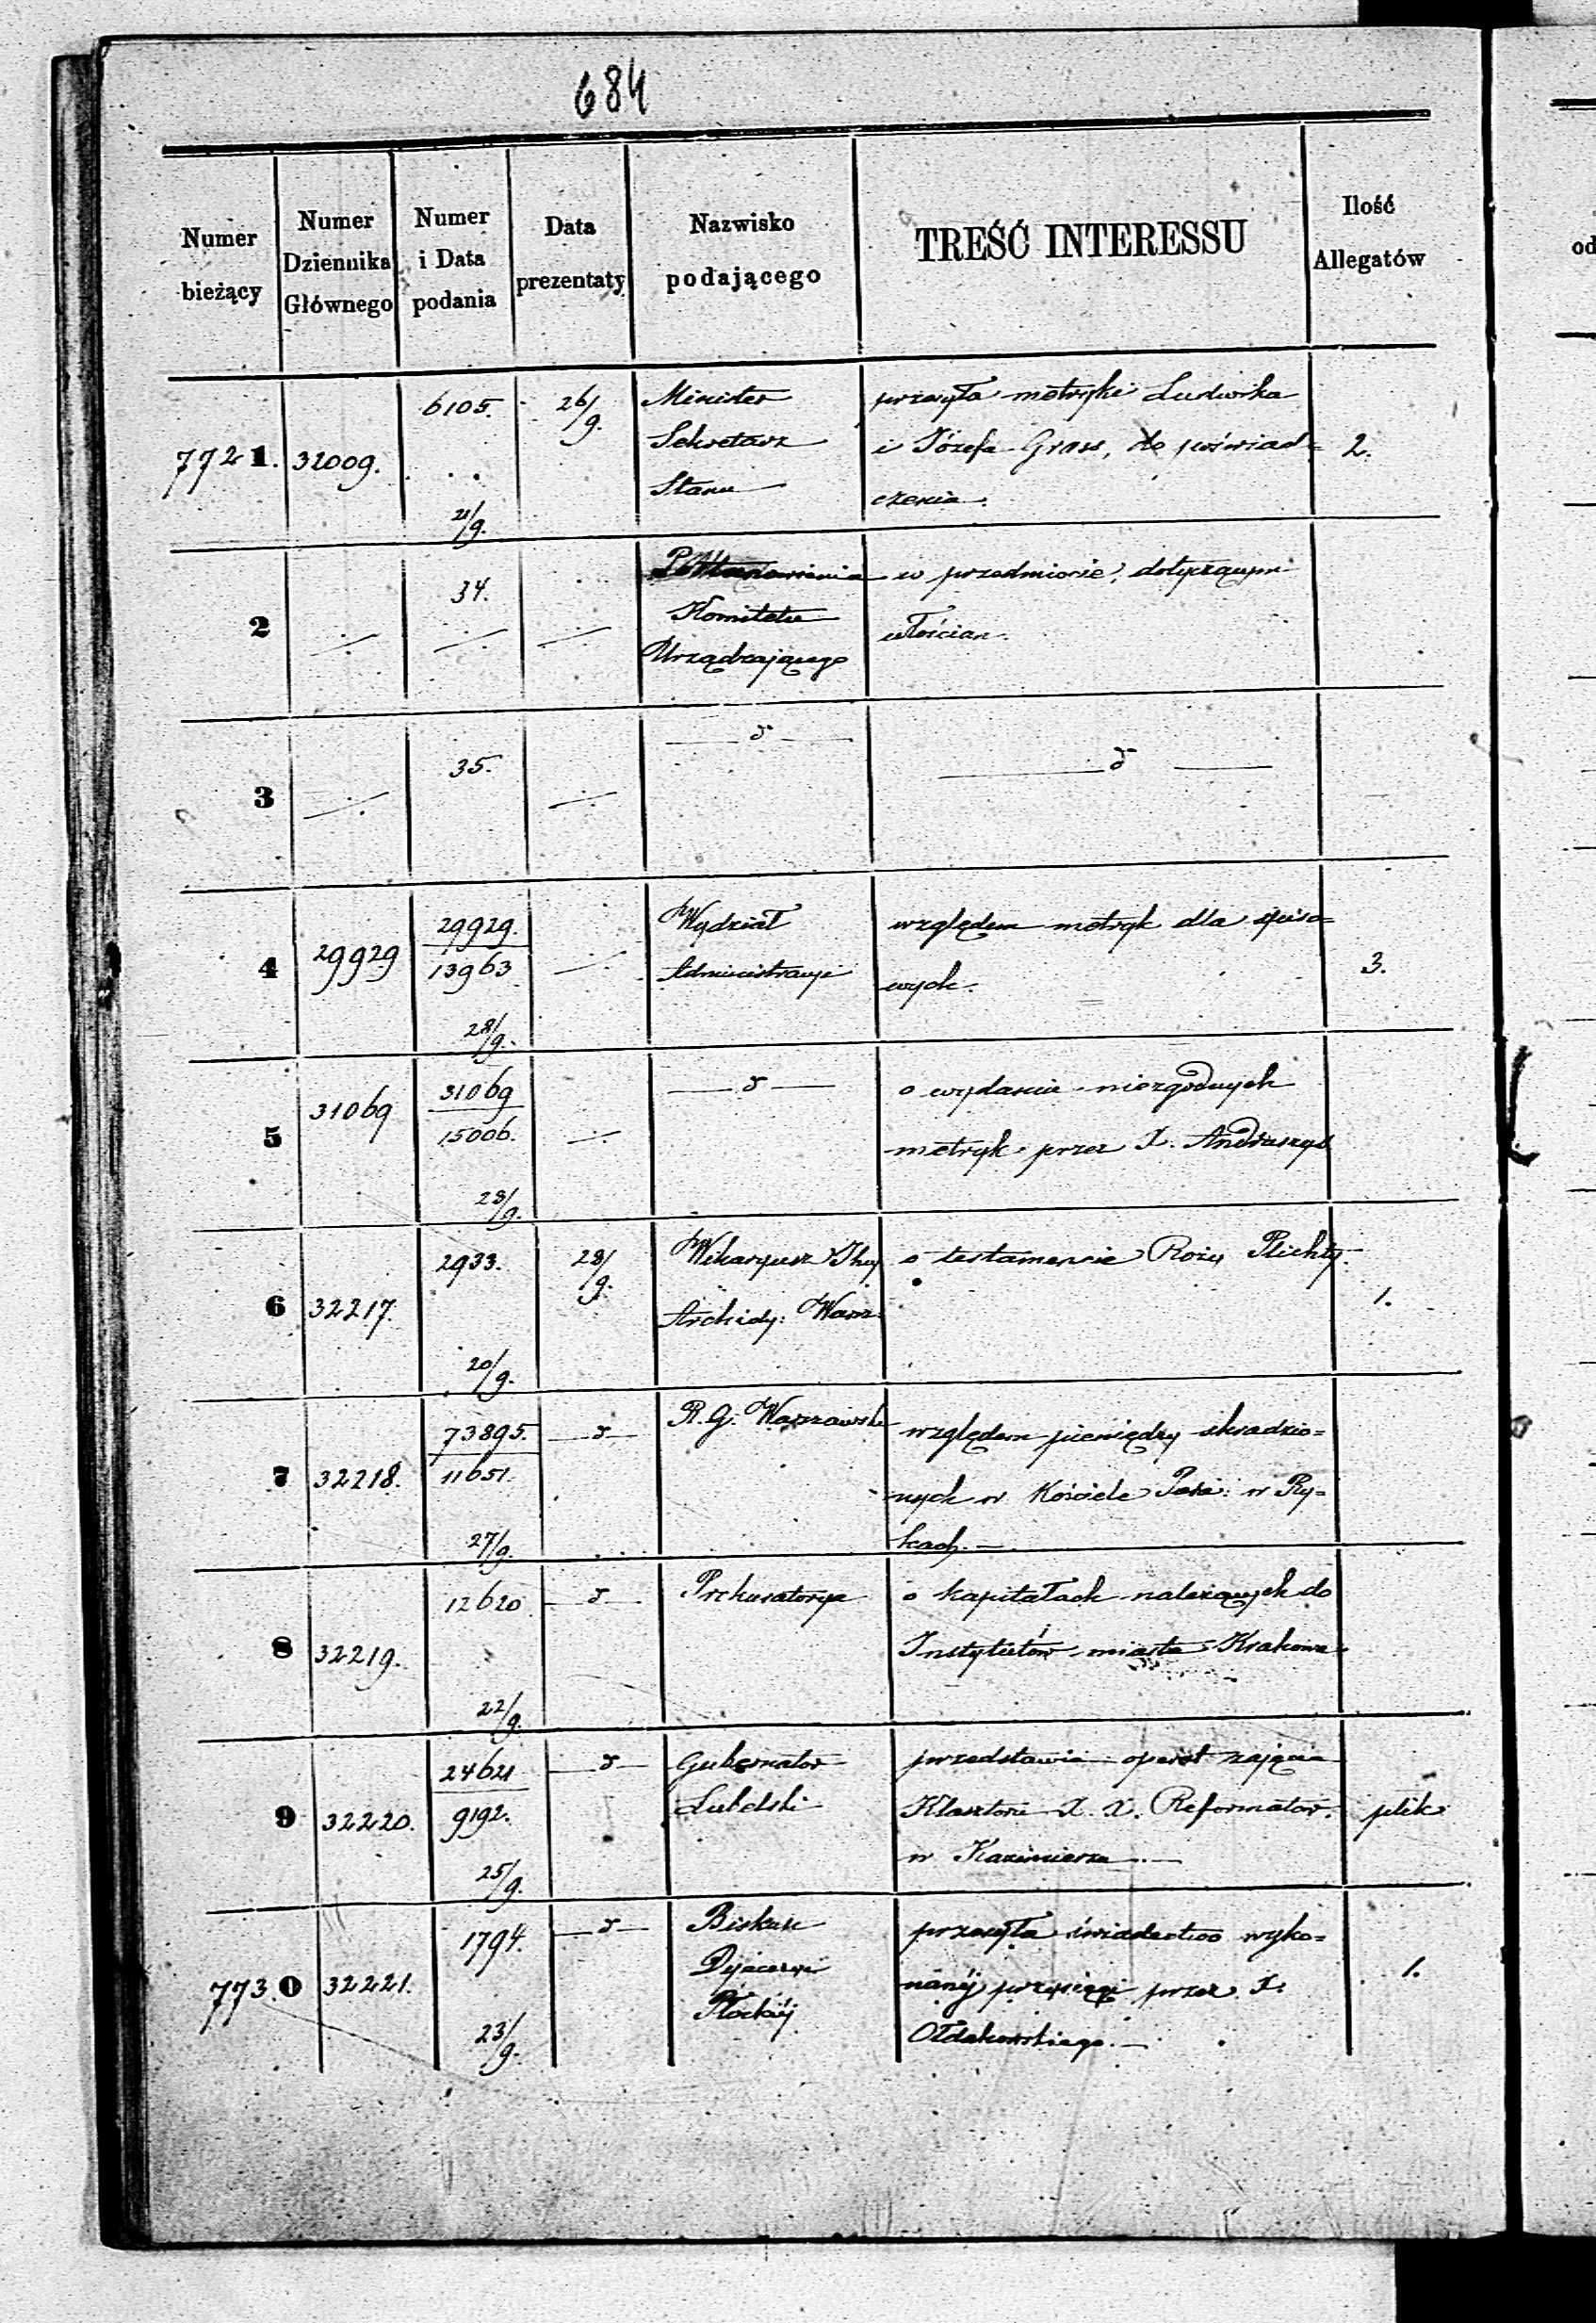 684
Numer bieżący
Numer Dziennika Głównego
Numer i Data podania
Data prezentaty
Nazwisko podającego
TREŚĆ INTERESSU
Ilość Allegatów
7721. 32009. 6105. 21/9. 26/9.
Minister
Sekretarz
Stanu
przesyła metryki Ludwika
i Józefa Grass, do poświad=
czenia.
2.
2 34.
Postanowienia
Komitetu
Urządzającego
w przedmiocie, dotyczącym
włościan.
3 35.
4 29929 29929. 13963 28/9.
Wydział
Administracyi
względem metryk dla spiso=
wych.
3.
5 31069 31069 15006. 28/9.
o wydanie niezgodnych
metryk przez X.
6 32217. 2933. 20/9. 28/9.
Wikaryusz
Archidy: Warsz.
o testamencie Rozy Plichty.
1.
7 32218. 73895. 11651. 27/9.
R. G. Warszawski
względem pieniędzy skradzio=
nych w Kościele w Ry=
kach.
8 32219. 12620 22/9.
Prokuratorya
o kapitałach należących do
Instytutów miasta Krakowa
9 32220. 24621 9192. 25/9.
Gubernator
Lubelski
przedstawia operat zajęcia
Klasztoru X. X. Reformatów.
w Kazimierzu
plik
7730 32221. 1794. 23/9.
Biskup
Dyjecezyi
Płockiéj
przesyła świadectwo wyko=
nanéj przysięgi przez X.
Ołdakowskiego.
1.
od